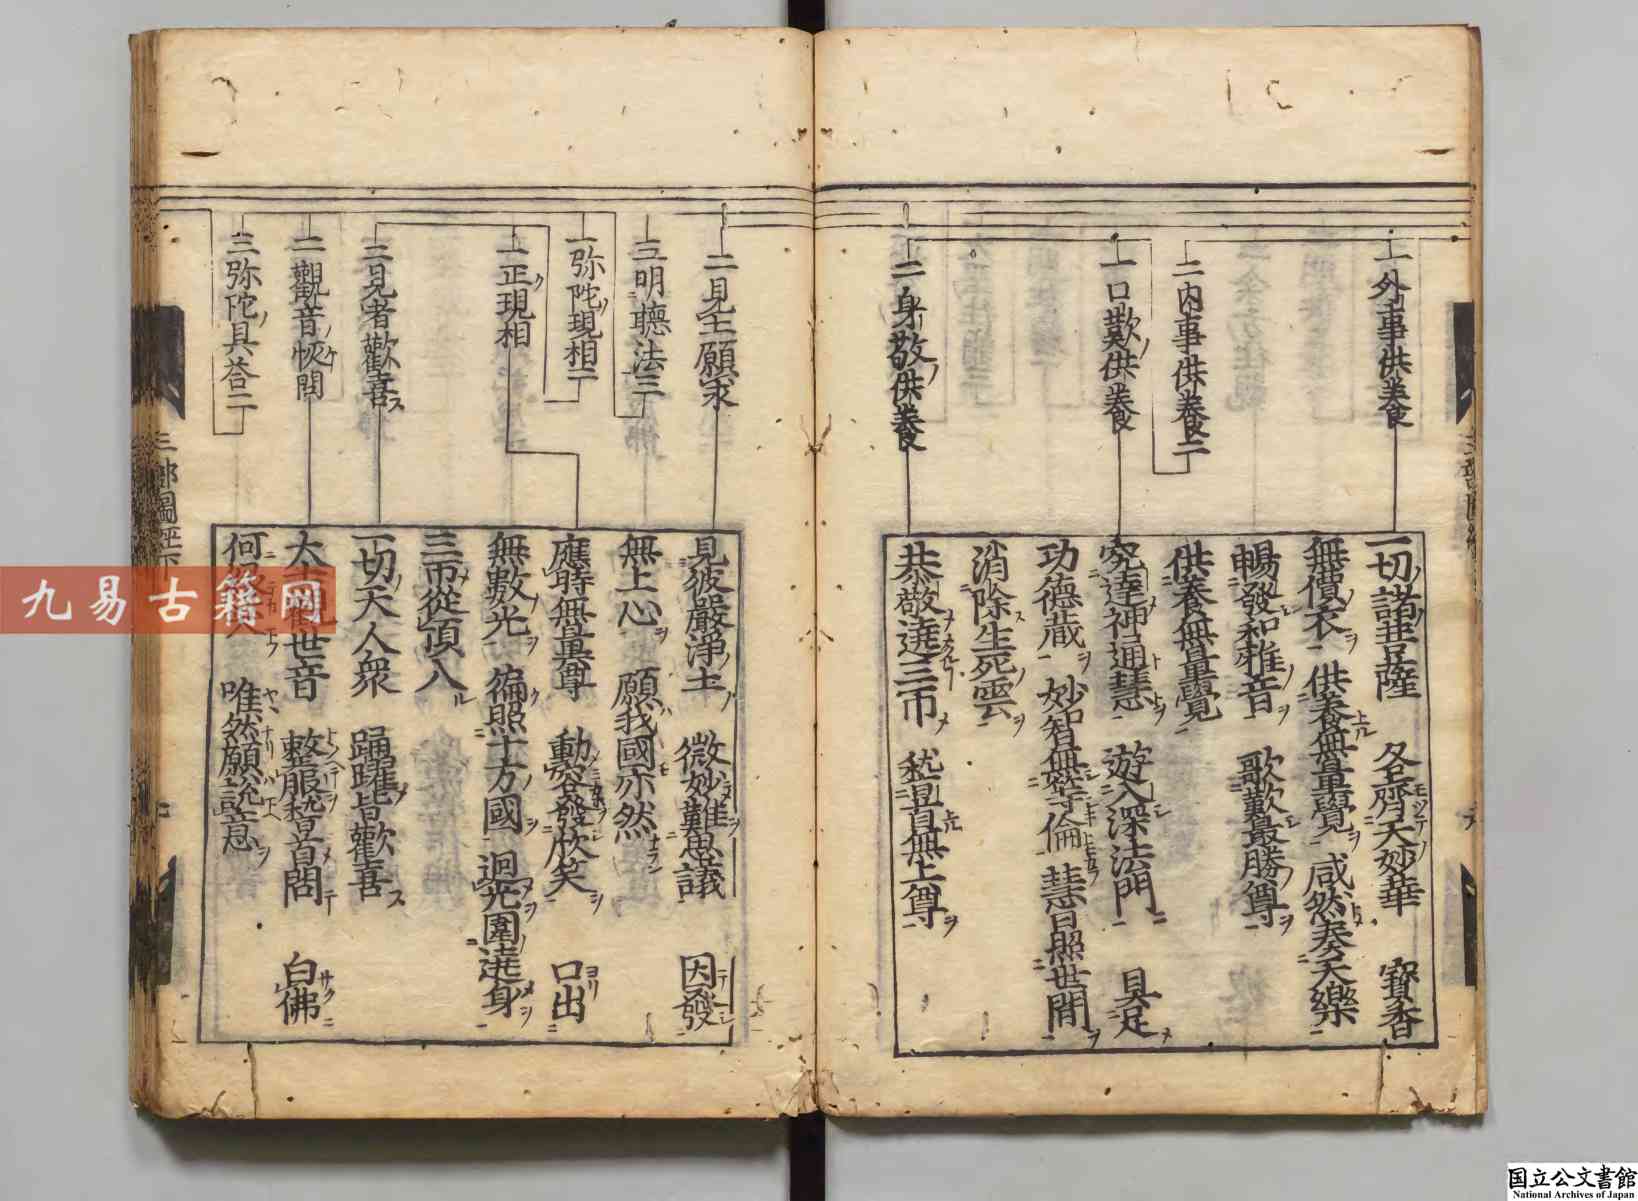 一外事供養
二内事供養二
一口歎供養
二身敬供養
一切諸菩薩 各齎天妙華 寳香
無價衣 供養無量覺 咸然奏天樂
暢發和雅音 歌歎最勝尊
供養無量覺
究達神通慧 遊入深法門 具足
功德蔵 妙智無等倫 慧日照世間
消除生死雲
恭敬遶三帀 稽首無上尊
二見土願求
三明聴法三
一弥陀現相二
一正現相
二見者歡喜
二觀音恢問
三弥陀具荅二
見彼嚴淨土 微妙難思議 因發
無上心 願我國亦然
應時無量尊 動容發欣笑 口出
無數光 徧照十方國 迴光圍遶身
三帀從頂入
一切天人衆 踊躍皆歡喜
大士觀世音 整服稽首問 白佛
何 唯然願說意
三部圖經下
九易古籍网
国立公文書館
National Archives of Japan